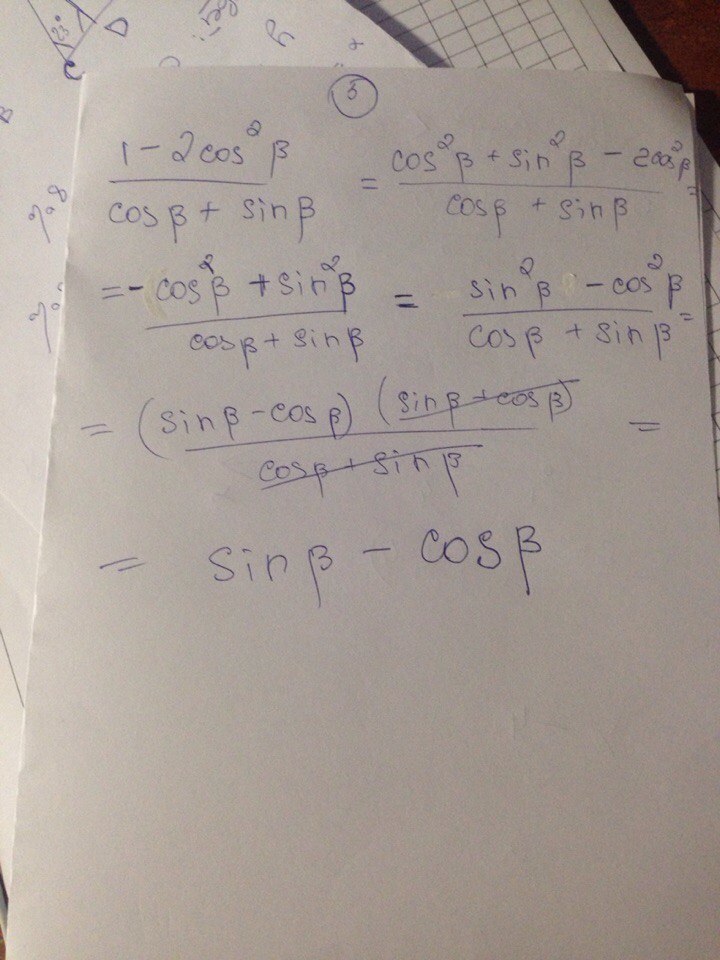 25°
C
3
1 - 2cos²β / cosβ + sinβ = cos²β + sin²β - 2cos²β / cosβ + sinβ =
= -cos²β + sin²β / cosβ + sinβ = sin²β - cos²β / cosβ + sinβ =
= (sinβ - cosβ) (sinβ + cosβ) / cosβ + sinβ =
= sinβ - cosβ